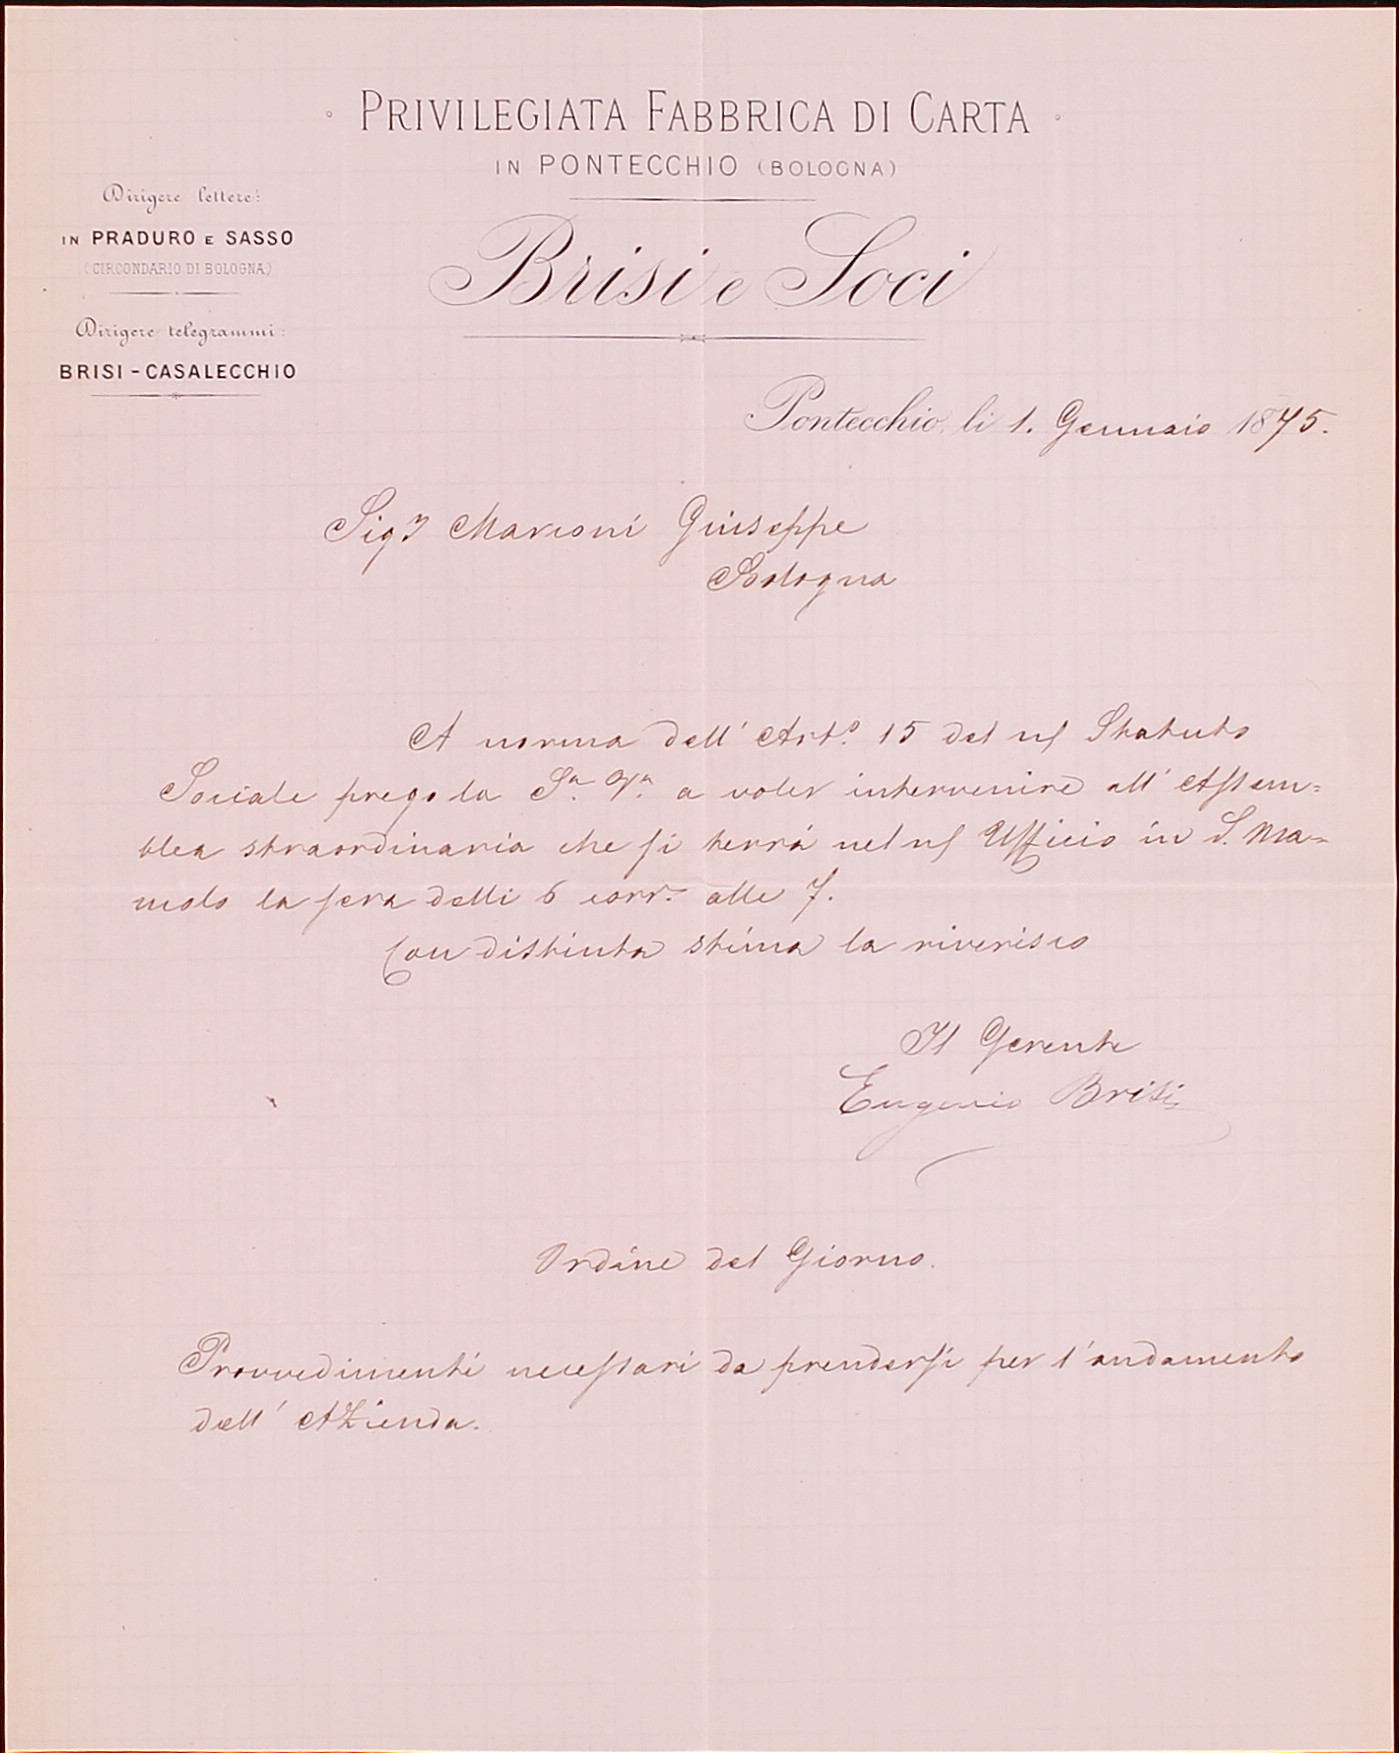 PRIVILEGIATA FABBRICA DI CARTA
IN PONTECCHIO (BOLOGNA)
Brisi e Soci
Dirigere lettere:
IN PRADURO E SASSO
(CIRCONDARIO DI BOLOGNA)
Dirigere telegrammi:
BRISI - CASALECCHIO
Pontecchio, li 1. Gennaio 1875.
Sigr Marconi Giuseppe
Bologna
A norma dell' Arto. 15 del ns Statuto
Sociale prego la Sa. Va. a voler intervenire all' Assem=
blea straordinaria che si terrà nel ns Ufficio in S. Ma=
molo la sera delli 6 corre. alle 7.
Con distinta stima la riverisco
Il Gerente
Eugenio Brisi
Ordine del Giorno.
Provvedimenti necessari da prendersi per l'andamento
dell' Azienda.